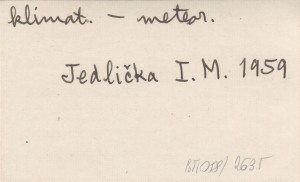 klimat. – meteor.
Jedlička I. M. 1959
2635